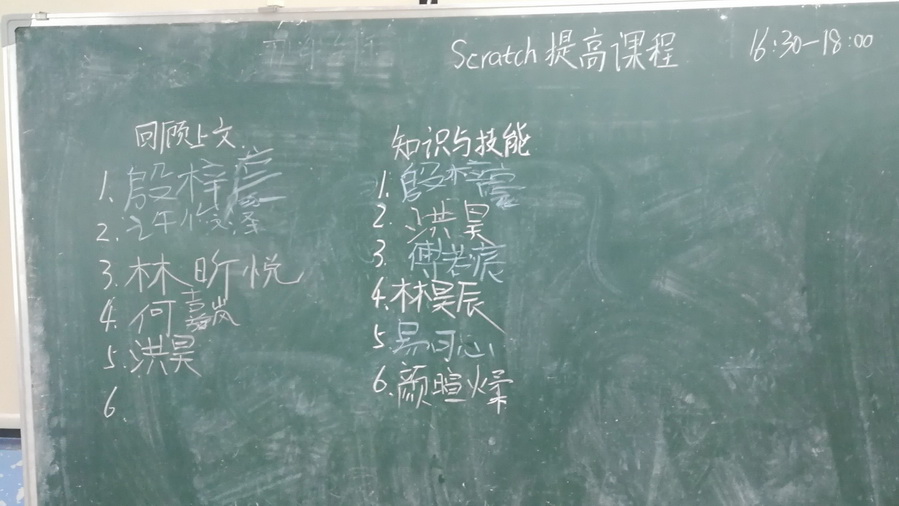 Scratch提高课程 16:30-18:00
回顾上文
1. 殷梓
2.
3. 林昕悦
4. 何嘉岚
5. 洪昊
6.
知识与技能
1. 殷梓
2. 洪昊
3. 傅
4. 林昊辰
5. 易可心
6. 颜暄燦